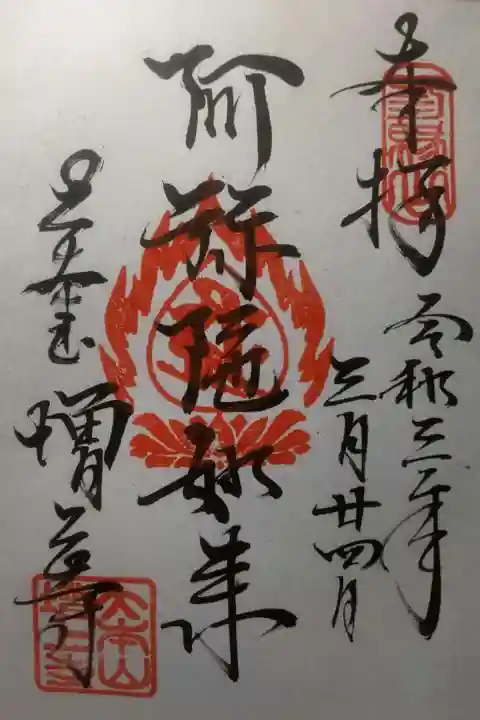 奉拝
令和三年
三月廿四日
阿弥陀如来
増上寺
大本山
増上寺